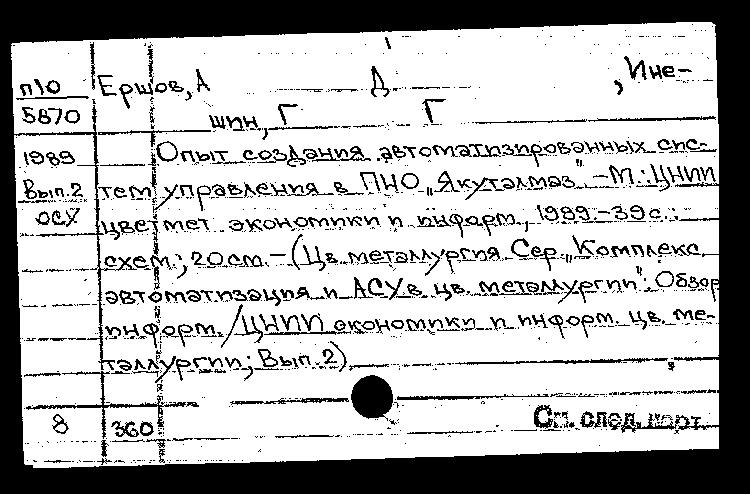 п10 Ершов, А Д. , Ине-
5870 шин, Г Г
1989 Опыт создания автоматизированных сис-
Вып.2 тем управления в ПНО „Якуталмаз". – М.: ЦНИИ
ОСХ цветмет экономики и информ., 1989. – 39 с.:
схем.; 20 см. – (Цв. металлургия Сер. „Комплекс.
автоматизация и АСУ в цв. металлургии": Обзор
информ. / ЦНИИ экономики и информ. цв. ме-
таллургии; Вып. 2).
8 360 См. след. карт.